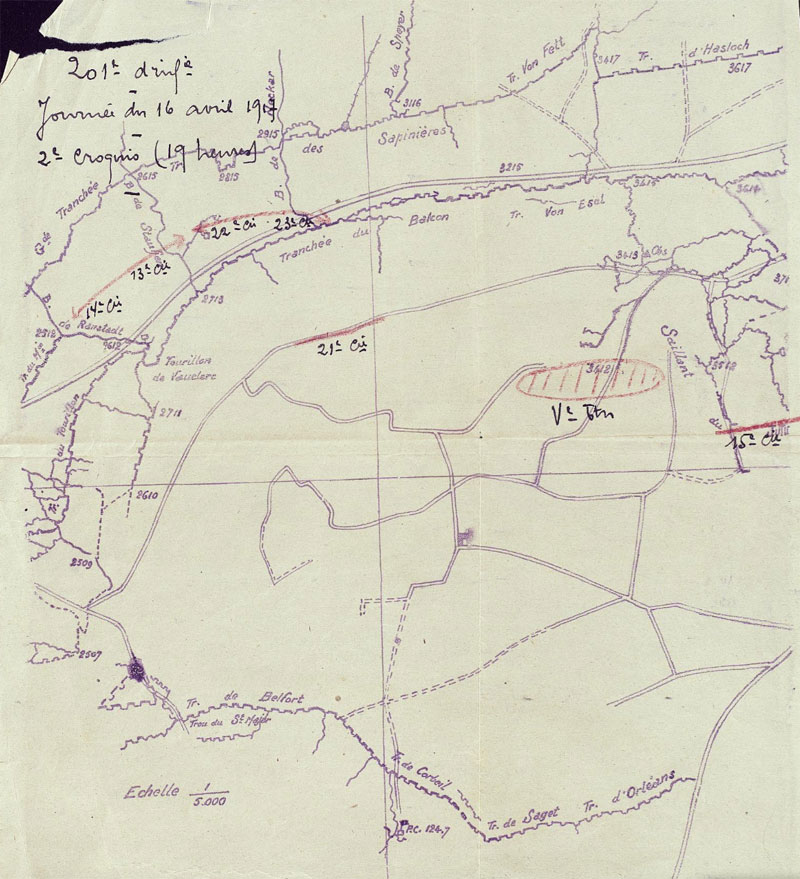 201e
Journée du 16 avril
2e croquis (19 heures)
B. de Speyer
Tr. Von Fell
3417
Tr.
d'Hasloch
3617
3116
2915
des
Sapinières
2615
Tr.
2815
B. de
Gde Tranchée
B. de
3215
3415
3614
22e Cie
23e Cie
Balcon
Tr. Von Esel
Tranchée du
13e Cie
3413
14e Cie
2713
B. de Ranstadt
2512
2612
21e Cie
Tourillon
de Vauclerc
Saillant
du
3612
3512
Ve Btn
2711
du Tourillon
15e Cie
2610
2509
2507
Tr. de Belfort
Trou du St Major
Tr. de Corbeil
Echelle 1/5.000
Tr. de Saget
Tr. d'Orléans
P.C. 124.7